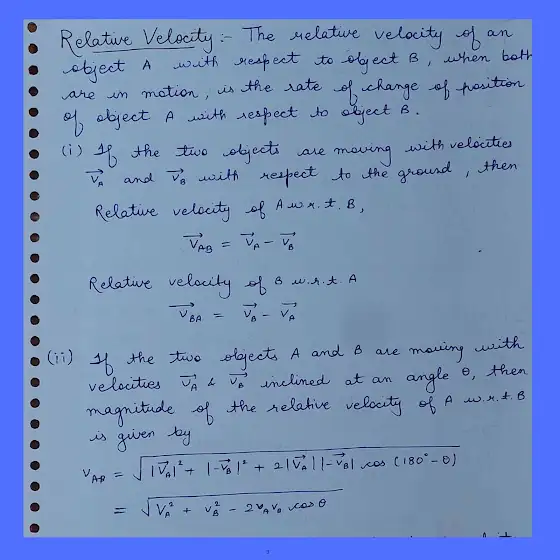 Relative Velocity :- The relative velocity of an
object A with respect to object B, when both
are in motion, is the rate of change of position
of object A with respect to object B.
(i) If the two objects are moving with velocities
$\vec{V_A}$ and $\vec{V_B}$ with respect to the ground, then
Relative velocity of A w.r.t. B,
$\vec{V_{AB}} = \vec{V_A} - \vec{V_B}$
Relative velocity of B w.r.t. A
$\vec{V_{BA}} = \vec{V_B} - \vec{V_A}$
(ii) If the two objects A and B are moving with
velocities $\vec{V_A}$ & $\vec{V_B}$ inclined at an angle θ, then
magnitude of the relative velocity of A w.r.t. B
is given by
$v_{AB} = \sqrt{|\vec{V_A}|^2 + |-\vec{V_B}|^2 + 2|\vec{V_A}||-\vec{V_B}| \cos (180° - θ)}$
$= \sqrt{V_A^2 + v_B^2 - 2 v_A v_B \cos θ}$